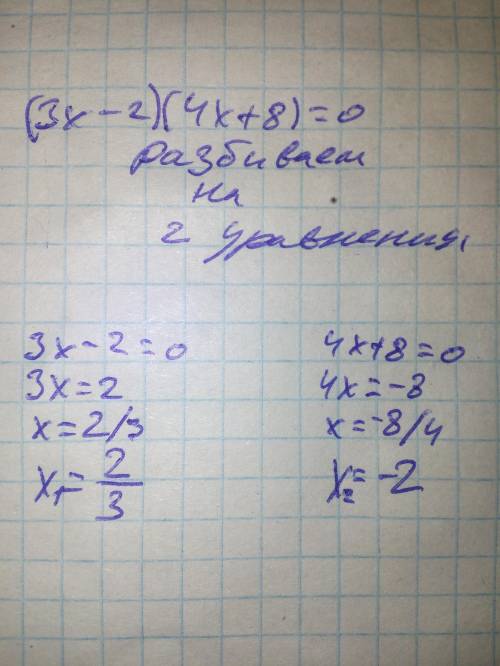 (3x-2)(4x+8)=0
разбиваем
на
2 уравнения
3x-2=0
3x=2
x=2/3
x₁=2/3
4x+8=0
4x=-8
x=-8/4
x₂=-2